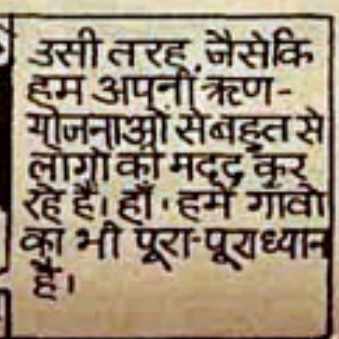 उसी तरह, जैसेकि
हम अपनी ऋण-
योजनाओं से बहुत से
लोगों की मदद कर
रहे हैं। हाँ, हमें गांवों
का भी पूरा-पूरा ध्यान
है।